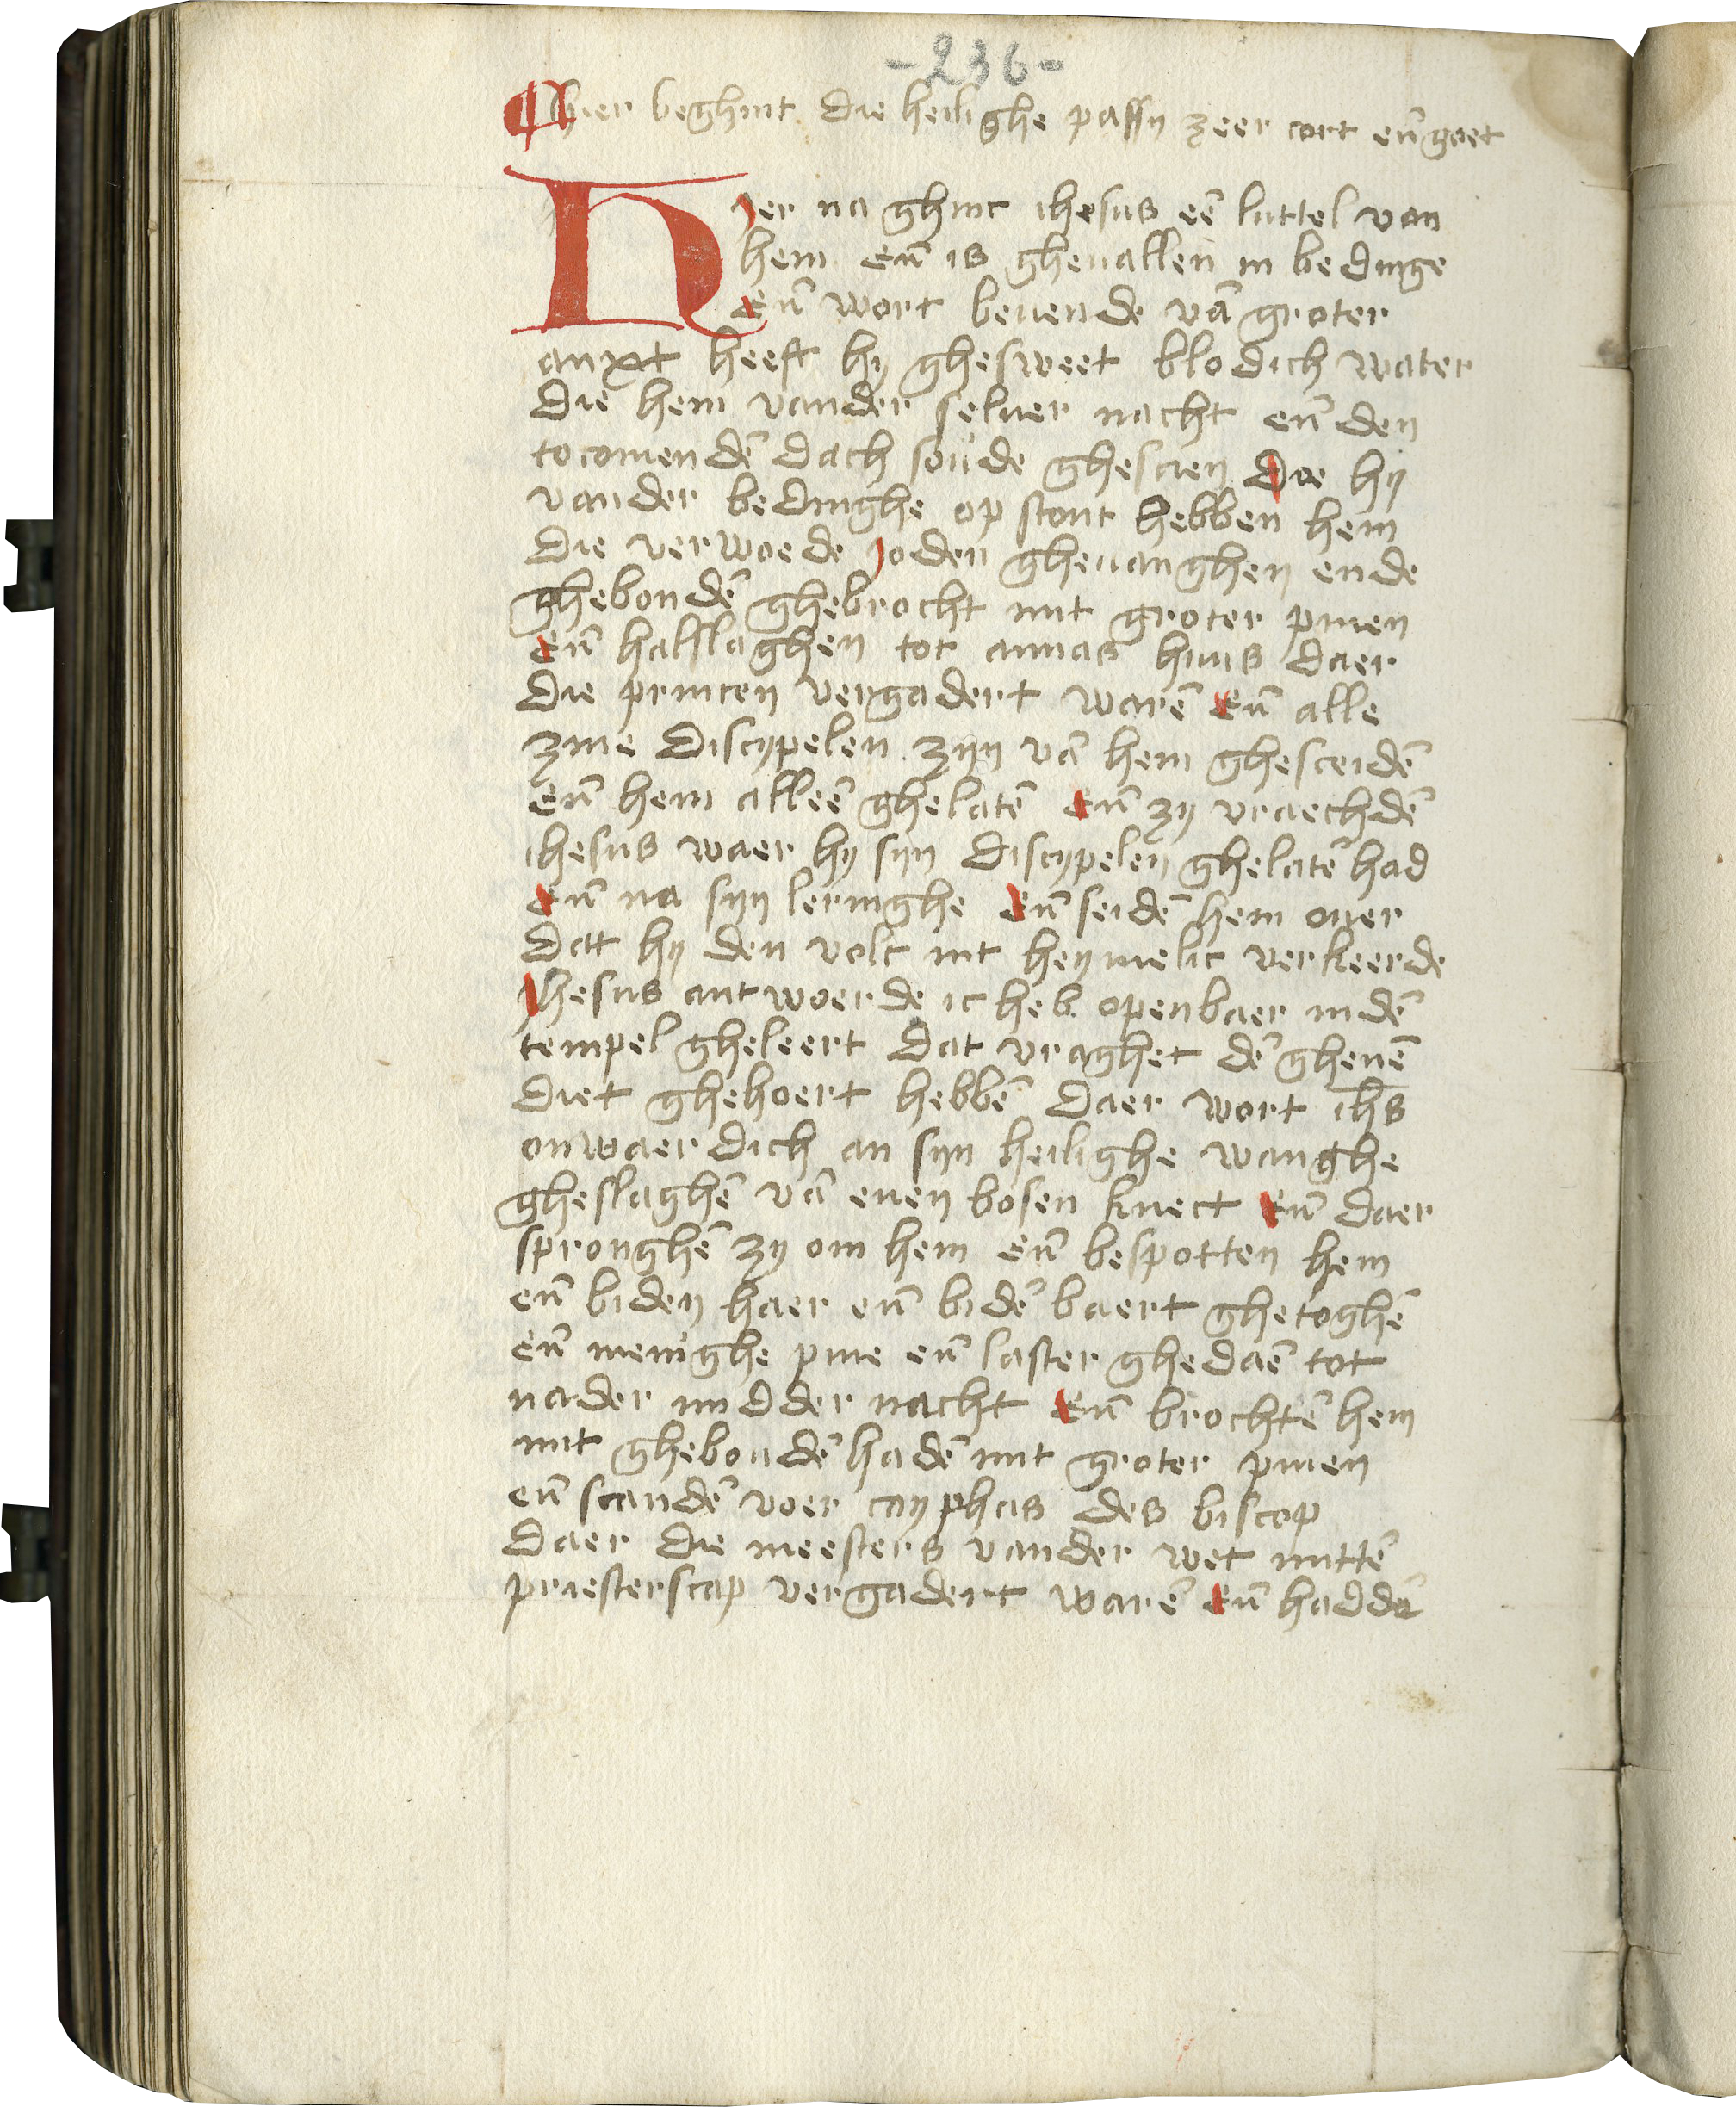 -236-
¶ hier beghint die heilighe passy zeer cort eñ goet
Hier na ghinc ihesus eē luttel van
hem eñ is gheuallen in bedinge
Eñ wort beuende vā groter
anxt heeft hy ghesweet blodich water
die hem vander seluer nacht eñ den
tocomendē dach soude ghescien Doe hij
vander bedinghe op stont hebben hem
die verwoede joden gheuanghen ende
ghebondē ghebrocht mit groter pinen
Eñ halslaghen tot annas huus daer
die princen vergadert warē Eñ alle
zine discypelen zijn vā hem ghesceidē
eñ hem alleē ghelatē Eñ zy vraechdē
ihesus waer hy sijn discypelen ghelatē had
Eñ na sijn leringhe Eñ seidē hem ouer
dat hy den volc int heymelic verkeerde
Jhesus antwoerde ic heb openbaer indē
tempel gheleert dat vraghet dē ghenē
diet ghehoert hebbē daer wort ihs
onwaerdich an sijn heilighe wanghe
gheslaghē vā enen bosen knect Eñ daer
spronghē zy om hem eñ bespotten hem
eñ biden haer eñ bidē baert ghetoghē
eñ menighe pine eñ laster ghedaē tot
nader midder nacht Eñ brochtē hem
mit ghebondē hadē mit groter pinen
eñ scandē voer cayphas des biscop
daer die meesters vander wet mittē
priesterscap vergadert warē Eñ haddē